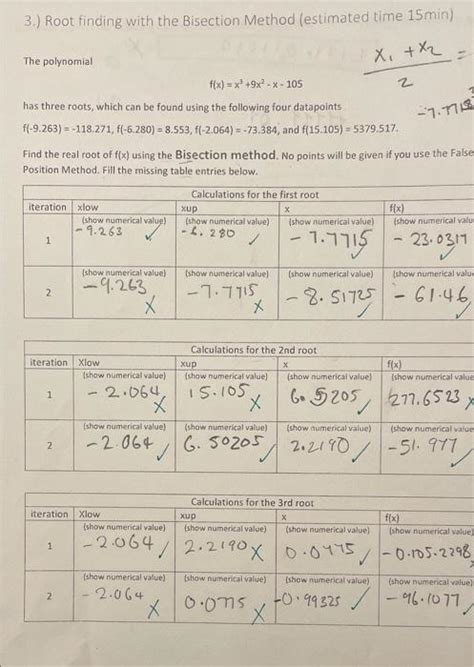 3.) Root finding with the Bisection Method (estimated time 15min)
x₁ + x₂ =
2
The polynomial
f(x) = x³ +9x² - x - 105
-7.7715
has three roots, which can be found using the following four datapoints
f(-9.263) = -118.271, f(-6.280) = 8.553, f(-2.064) = -73.384, and f(15.105) = 5379.517.
Find the real root of f(x) using the Bisection method. No points will be given if you use the False
Position Method. Fill the missing table entries below.
Calculations for the first root
iteration xlow xup x f(x)
(show numerical value) (show numerical value) (show numerical value) (show numerical valu
1 -9.263 ✓ -6.280 ✓ -7.7715 ✓ -23.0317 ✓
(show numerical value) (show numerical value) (show numerical value) (show numerical valu
2 -9.263 X -7.7715 X -8.51725 ✓ -61.46 ✓
Calculations for the 2nd root
iteration Xlow xup x f(x)
(show numerical value) (show numerical value) (show numerical value) (show numerical value
1 -2.064 X 15.105 X 6.5205 ✓ 277.6523 X
(show numerical value) (show numerical value) (show numerical value) (show numerical value
2 -2.064 ✓ 6.50205 ✓ 2.2190 ✓ -51.977 ✓
Calculations for the 3rd root
iteration Xlow xup x f(x)
(show numerical value) (show numerical value) (show numerical value) (show numerical value)
1 -2.064 ✓ 2.2190 X 0.0775 ✓ -0.105.2298 ✓
(show numerical value) (show numerical value) (show numerical value) (show numerical value)
2 -2.064 X 0.0775 X -0.99325 ✓ -96.1077 ✓